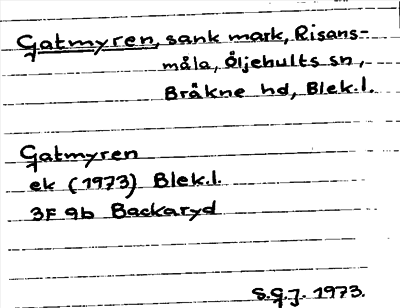 Gatmyren, sank mark, Risans-
måla, Öljehults sn,
Bräkne hd, Blek.l.
Gatmyren
ek (1973) Blek.l.
3F 9b Backaryd
S.G.J. 1973.